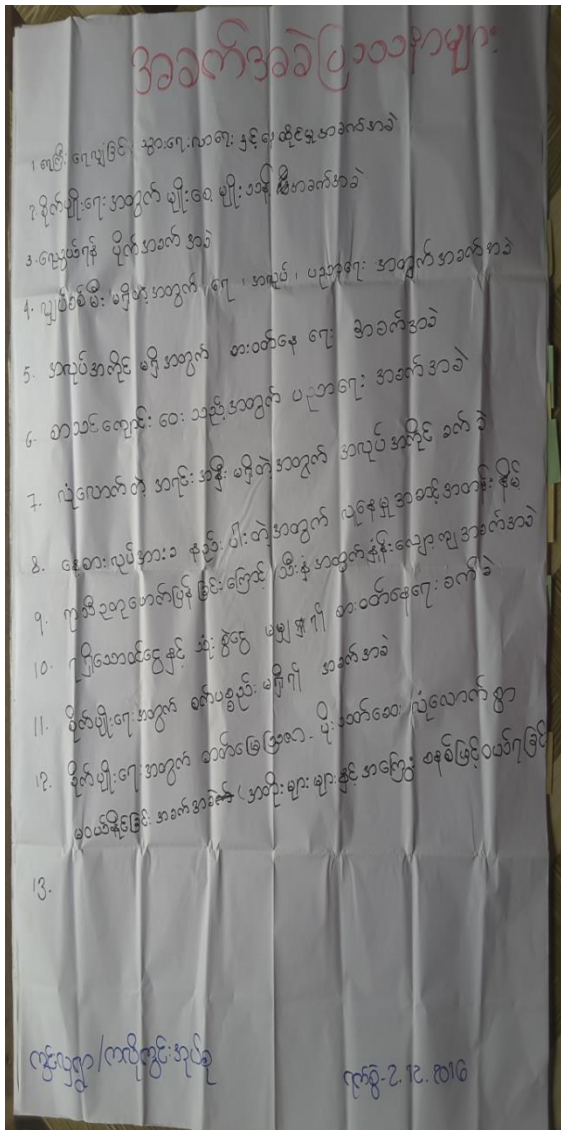 အခက်အခဲပြဿနာများ
1. ရေကြီး ရေလျှံခြင်း၊ သွားရေးလာရေး နှင့် နေထိုင်မှုအခက်အခဲ
2. စိုက်ပျိုးရေးအတွက် မျိုးစေ့ မျိုးသန့် အခက်အခဲ
3. ငွေ ပိုက် အခက်အခဲ
4. လျှပ်စစ်မီး မရှိတဲ့အတွက် ရေ၊ အလုပ်၊ ပညာရေး အတွက်အခက်အခဲ
5. အလုပ်အကိုင် မရှိအတွက် စားဝတ်နေ ရေး အခက်အခဲ
6. စာသင်ကျောင်း ဝေး သည့်အတွက် ပညာရေး အခက်အခဲ
7. လုံလောက်တဲ့ အရင်းအနှီး မရှိတဲ့အတွက် အလုပ်အကိုင် ခက်ခဲ
8. နေ့စားလုပ်အားခ နည်းပါးတဲ့အတွက် လူနေမှုအဆင့်အတန်းနိမ့်
9. ရာသီဥတုဖောက်ပြန်ခြင်းကြောင့် သီးနှံအတွက်နှုန်းလျော့ကျအခက်အခဲ
10. ရရှိသောဝင်ငွေနှင့် သုံးစွဲငွေ မမျှတ၍ စားဝတ်နေရေးခက်ခဲ
11. စိုက်ပျိုးရေးအတွက် စက်ပစ္စည်းမရှိ၍ အခက်အခဲ
12. စိုက်ပျိုးရေးအတွက် ဓာတ်မြေသြဇာ၊ ပိုးသတ်ဆေး လုံလောက်စွာ
မဝယ်နိုင်ခြင်း အခက်အခဲ (အတိုးများများနှင့်အကြွေးစနစ်ဖြင့်ဝယ်ရခြင်း
13.
အုပ်စု
ရက်စွဲ - 2.12.2016